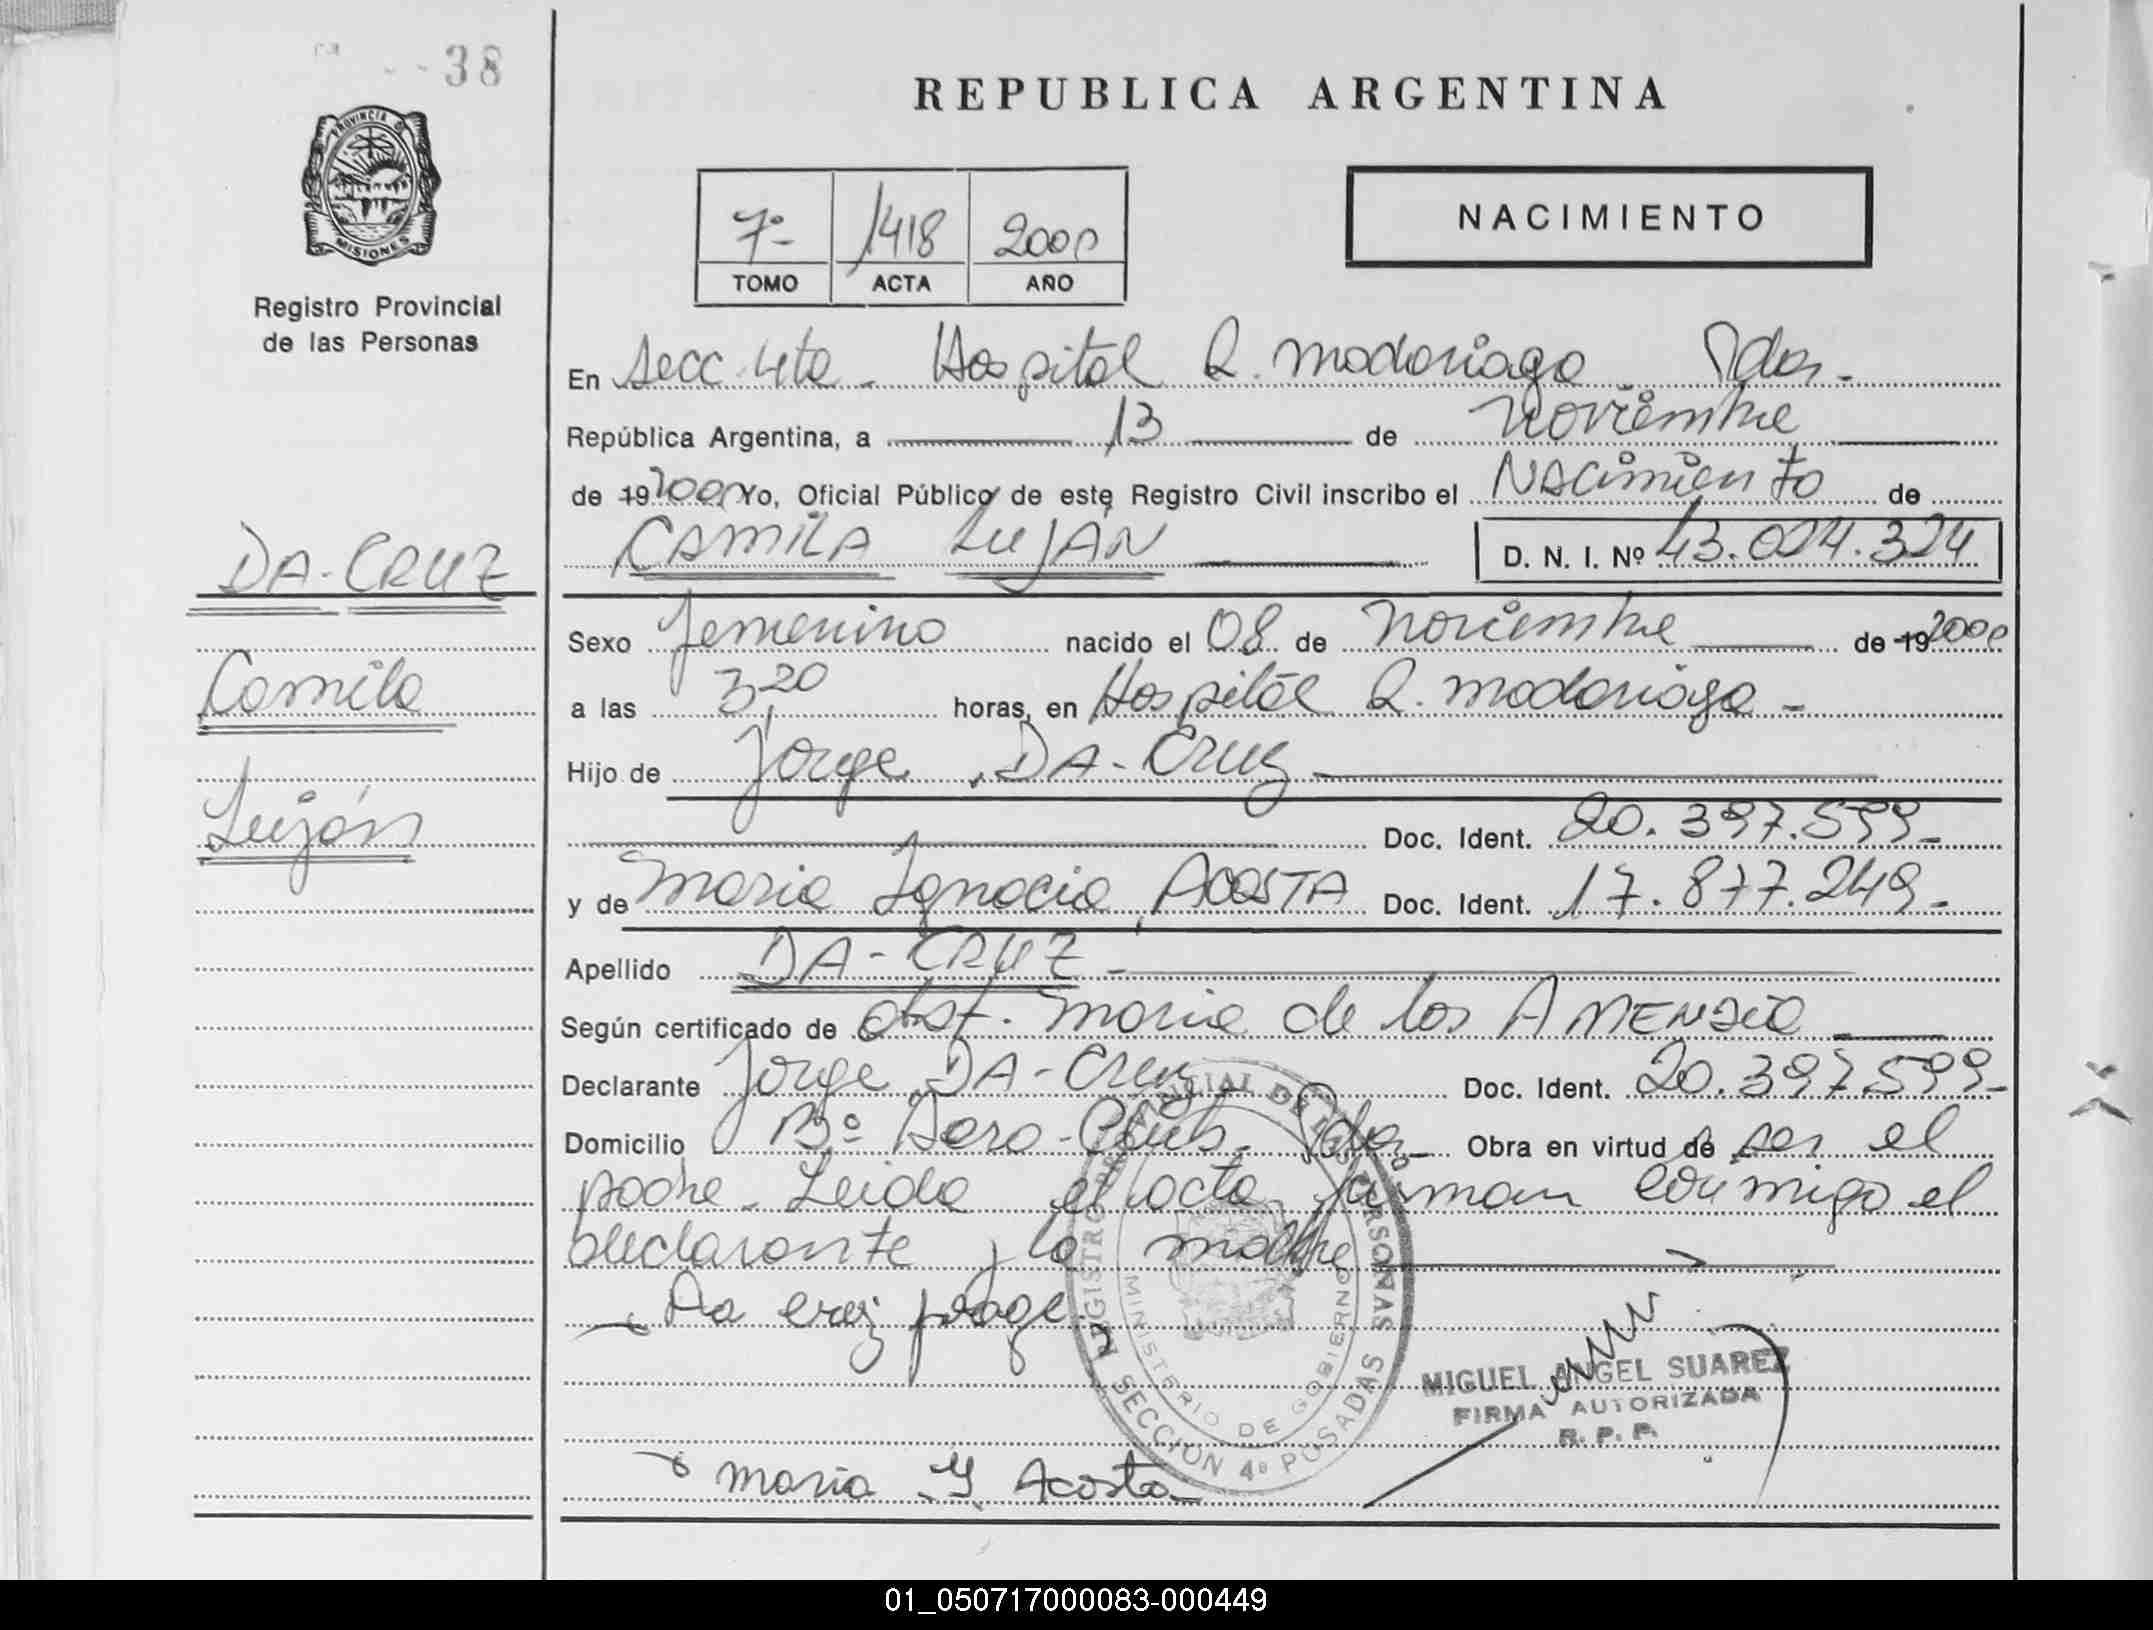 38
REPUBLICA ARGENTINA
PROVINCIA D
MISIONES
Registro Provincial
de las Personas
7º- 1418 2000
TOMO ACTA AÑO
NACIMIENTO
En Secc. 4ta - Hospital R. Madariaga - Pdas.-
República Argentina, a 13 de Noviembre
de 19 2000 Yo, Oficial Público de este Registro Civil inscribo el Nacimiento de
CAMILA LUJÁN D. N. I. Nº 43.024.324
DA-CRUZ
Camila
Luján
Sexo femenino nacido el 08 de Noviembre de 19 2000
a las 3,20 horas, en Hospital R. Madariaga -
Hijo de Jorge DA-Cruz
Doc. Ident. 20.397.599-
y de Maria Ignacia ACOSTA Doc. Ident. 17.877.249.-
Apellido DA-CRUZ -
Según certificado de obst. Maria de los A
Declarante Jorge DA-Cruz Doc. Ident. 20.397.599-
Domicilio Bº Aero-Club. Pdas. Obra en virtud de ser el
padre. Leida el acta firman conmigo el
declarante y la madre
Da cruz jorge
REGISTRO PROVINCIAL DE LAS PERSONAS
MINISTERIO DE GOBIERNO
SECCION 4º POSADAS
MIGUEL ANGEL SUAREZ
FIRMA AUTORIZADA
R. P. P.
Maria I Acosta
01_050717000083-000449